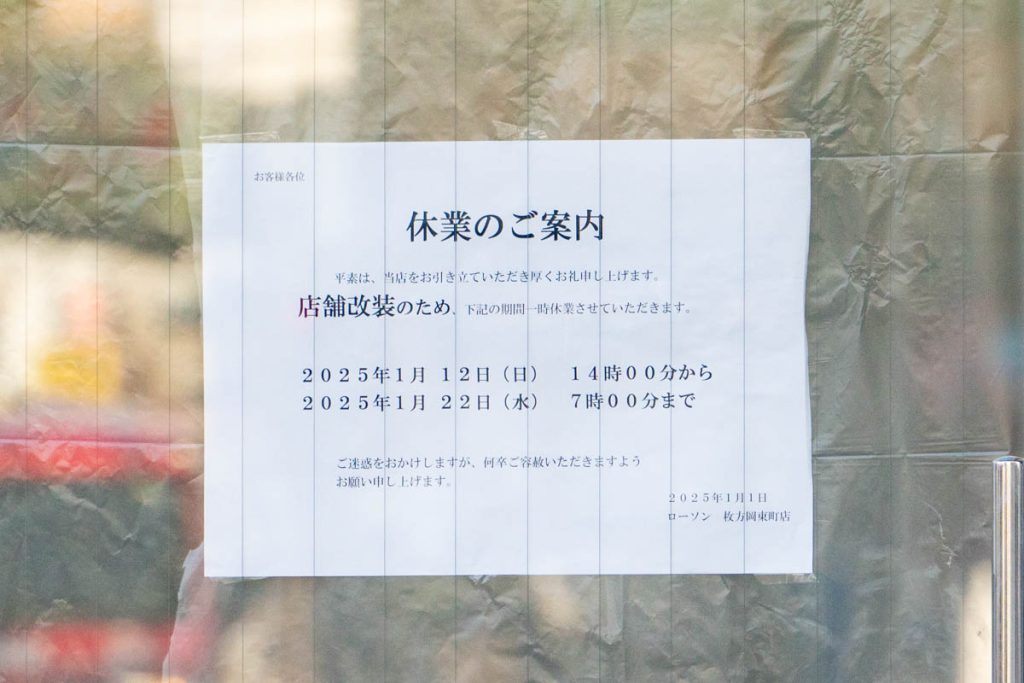 お客様各位
休業のご案内
平素は、当店をお引き立ていただき厚くお礼申し上げます。
店舗改装のため、下記の期間一時休業させていただきます。
2025年1月 12日（日） 14時00分から
2025年1月 22日（水） 7時00分まで
ご迷惑をおかけしますが、何卒ご容赦いただきますよう
お願い申し上げます。
2025年1月1日
ローソン 枚方岡東町店